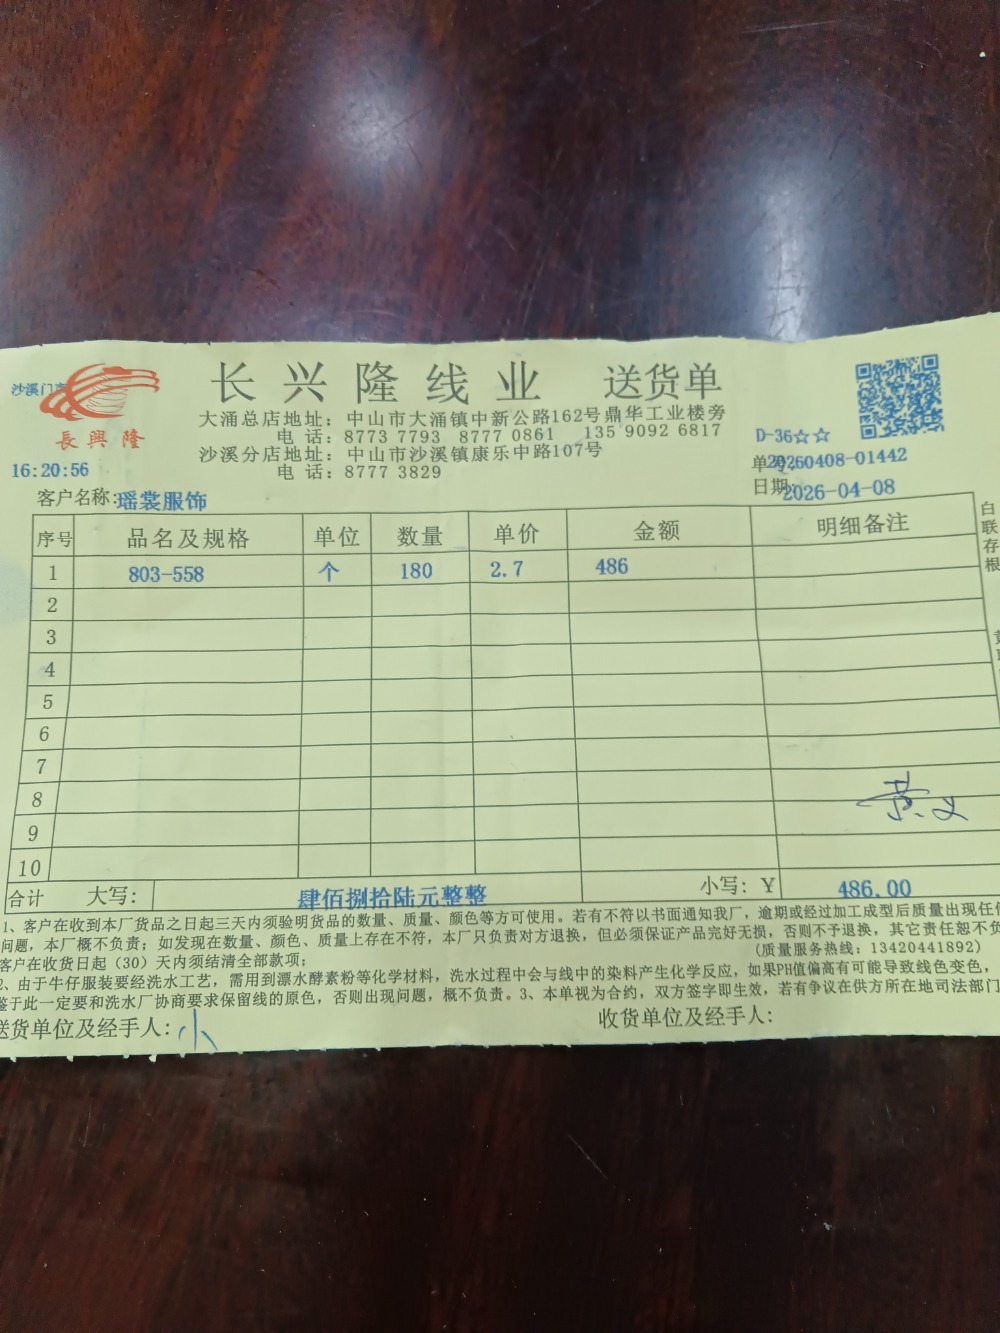 沙溪门市
長興隆
长兴隆线业 送货单
大涌总店地址：中山市大涌镇中新公路162号鼎华工业楼旁
电话：8773 7793 8777 0861 135 9092 6817
沙溪分店地址：中山市沙溪镇康乐中路107号
电话：8777 3829
D-36☆☆
16:20:56
单号20260408-01442
日期2026-04-08
客户名称：瑶裳服饰
序号 品名及规格 单位 数量 单价 金额 明细备注
1 803-558 个 180 2.7 486
2
3
4
5
6
7
8
9
10
合计 大写： 肆佰捌拾陆元整整 小写：¥ 486.00
白联存根
1、客户在收到本厂货品之日起三天内须验明货品的数量、质量、颜色等方可使用。若有不符以书面通知我厂，逾期或经过加工成型后质量出现任
问题，本厂概不负责；如发现在数量、颜色、质量上存在不符，本厂只负责对方退换，但必须保证产品完好无损，否则不予退换，其它责任恕不
客户在收货日起（30）天内须结清全部款项； (质量服务热线：13420441892)
2、由于牛仔服装要经洗水工艺，需用到漂水酵素粉等化学材料，洗水过程中会与线中的染料产生化学反应，如果PH值偏高有可能导致线色变色，
鉴于此一定要和洗水厂协商要求保留线的原色，否则出现问题，概不负责。3、本单视为合约，双方签字即生效，若有争议在供方所在地司法部门
送货单位及经手人：小 收货单位及经手人：